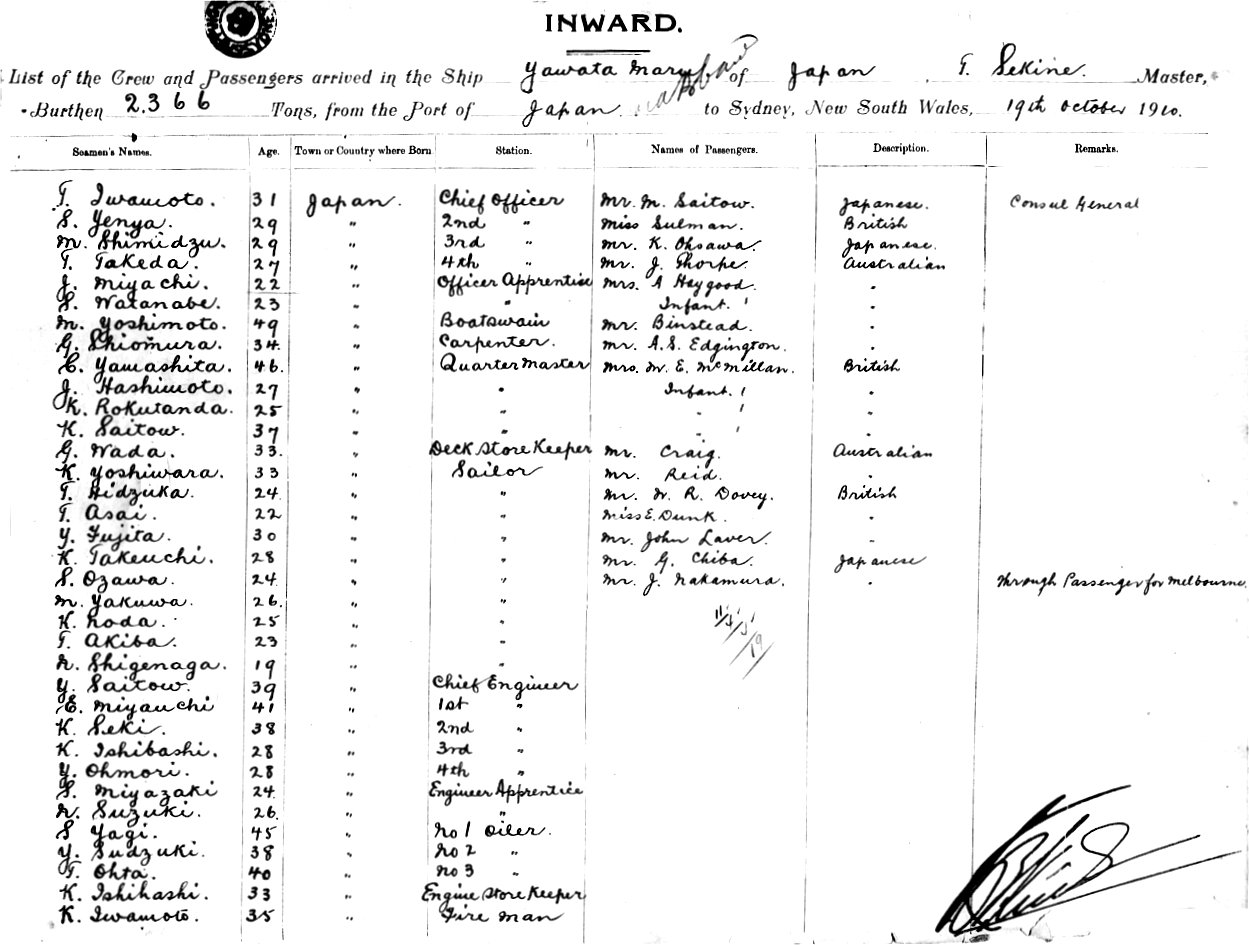 INWARD.
List of the Crew and Passengers arrived in the Ship Yawata Maru of Japan, T. Sekine. Master,
Burthen 2.366 Tons, from the Port of Japan. to Sydney, New South Wales, 19th October 1910.
Seamen's Names. Age. Town or Country where Born Station. Names of Passengers. Description. Remarks.
T. Iwamoto. 31 Japan. Chief Officer Mr. M. Saitow. Japanese. Consul General
S. Yenya. 29 " 2nd " Miss Sulman. British
M. Shimidzu. 29 " 3rd " Mr. K. Ohsawa. Japanese.
T. Takeda. 27 " 4th " Mr. J. Thorpe. Australian
J. Miyachi. 22 " Officer Apprentice Mrs. A Haygood. "
S. Watanabe. 23 " " Infant. 1 "
M. Yoshimoto. 49 " Boatswain Mr. Binstead. "
G. Shiomura. 34. " Carpenter. Mr. A.S. Edgington. "
C. Yamashita. 46. " Quarter Master Mrs. M. E. McMillan. British
J. Hashimoto. 27 " " Infant. 1 "
K. Rokutanda. 25 " " " 1 "
K. Saitow. 37 " " " 1 "
G. Wada. 33. " Deck Store Keeper Mr. Craig. Australian
K. Yoshiwara. 33 " Sailor Mr. Reid. "
T. Hidzuka. 24. " " Mr. W. R. Dovey. British
T. Asai. 22 " " Miss E. Dunk. "
Y. Fujita. 30 " " Mr. John Laver. "
K. Takeuchi. 28 " " Mr. G. Chiba. Japanese
S. Ozawa. 24. " " Mr. J. Nakamura. " Through Passenger for Melbourne.
M. Yakuwa. 26. " "
K. Noda. 25 " "
T. Akiba. 23 " "
N. Shigenaga. 19 " "
Y. Saitow. 39 " Chief Engineer
E. Miyauchi 41 " 1st "
K. Seki. 38 " 2nd "
K. Ishibashi. 28 " 3rd "
Y. Ohmori. 28 " 4th "
S. Miyazaki 24. " Engineer Apprentice
N. Suzuki. 26. " "
S Yagi. 45 " No 1 Oiler.
Y. Sudzuki. 38 " No 2 "
T. Ohta. 40 " No 3 "
K. Ishihashi. 33 " Engine Store Keeper
K. Iwamoto. 35 " Fire Man